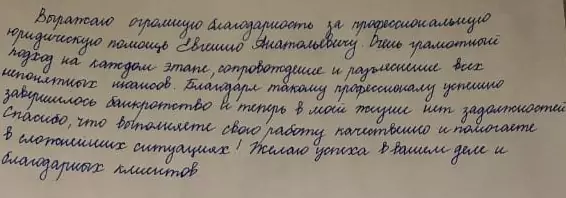 Выражаю огромную благодарность за профессиональную
юридическую помощь Евгению Анатольевичу. Очень грамотный
подход на каждом этапе, сопровождение и разъяснение всех
непонятных нюансов. Благодаря такому профессионалу успешно
завершилось банкротство и теперь в моей жизни нет задолжностей
Спасибо, что выполняете свою работу качественно и помогаете
в сложнейших ситуациях! Желаю успеха в вашем деле и
благодарных клиентов